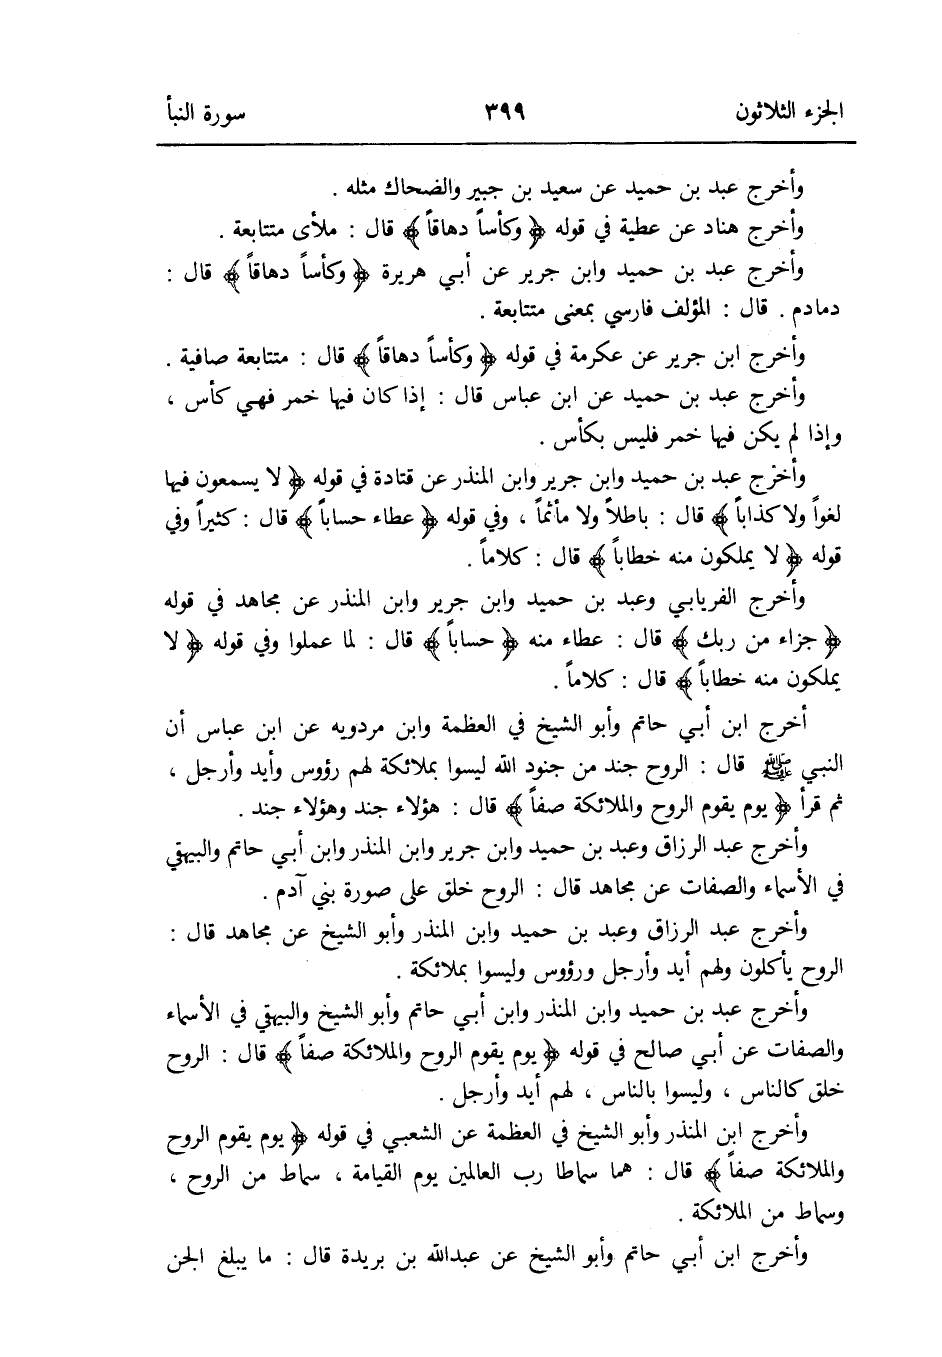 الجزء الثلاثون ٣٩٩ سورة النبأ
وأخرج عبد بن حميد عن سعيد بن جبير والضحاك مثله .
وأخرج هناد عن عطية في قوله ﴿ وكأساً دهاقاً ﴾ قال : ملأى متتابعة .
وأخرج عبد بن حميد وابن جرير عن أبي هريرة ﴿ وكأساً دهاقاً ﴾ قال :
دمادم . قال : المؤلف فارسي بمعنى متتابعة .
وأخرج ابن جرير عن عكرمة في قوله ﴿ وكأساً دهاقاً ﴾ قال : متتابعة صافية .
وأخرج عبد بن حميد عن ابن عباس قال : إذا كان فيها خمر فهي كأس ،
وإذا لم يكن فيها خمر فليس بكأس .
وأخرج عبد بن حميد وابن جرير وابن المنذر عن قتادة في قوله ﴿ لا يسمعون فيها
لغواً ولا كذاباً ﴾ قال : باطلاً ولا مأثماً ، وفي قوله ﴿ عطاء حساباً ﴾ قال : كثيراً وفي
قوله ﴿ لا يملكون منه خطاباً ﴾ قال : كلاماً .
وأخرج الفريابي وعبد بن حميد وابن جرير وابن المنذر عن مجاهد في قوله
﴿ جزاء من ربك ﴾ قال : عطاء منه ﴿ حساباً ﴾ قال : لما عملوا وفي قوله ﴿ لا
يملكون منه خطاباً ﴾ قال : كلاماً .
أخرج ابن أبي حاتم وأبو الشيخ في العظمة وابن مردويه عن ابن عباس أن
النبي ﷺ قال : الروح جند من جنود الله ليسوا بملائكة لهم رؤوس وأيد وأرجل ،
ثم قرأ ﴿ يوم يقوم الروح والملائكة صفاً ﴾ قال : هؤلاء جند وهؤلاء جند .
وأخرج عبد الرزاق وعبد بن حميد وابن جرير وابن المنذر وابن أبي حاتم والبيهقي
في الأسماء والصفات عن مجاهد قال : الروح خلق على صورة بني آدم .
وأخرج عبد الرزاق وعبد بن حميد وابن المنذر وأبو الشيخ عن مجاهد قال :
الروح يأكلون ولهم أيد وأرجل ورؤوس وليسوا بملائكة .
وأخرج عبد بن حميد وابن المنذر وابن أبي حاتم وأبو الشيخ والبيهقي في الأسماء
والصفات عن أبي صالح في قوله ﴿ يوم يقوم الروح والملائكة صفاً ﴾ قال : الروح
خلق كالناس ، وليسوا بالناس ، لهم أيد وأرجل .
وأخرج ابن المنذر وأبو الشيخ في العظمة عن الشعبي في قوله ﴿ يوم يقوم الروح
والملائكة صفاً ﴾ قال : هما سماطا رب العالمين يوم القيامة ، سماط من الروح ،
وسماط من الملائكة .
وأخرج ابن أبي حاتم وأبو الشيخ عن عبدالله بن بريدة قال : ما يبلغ الجن